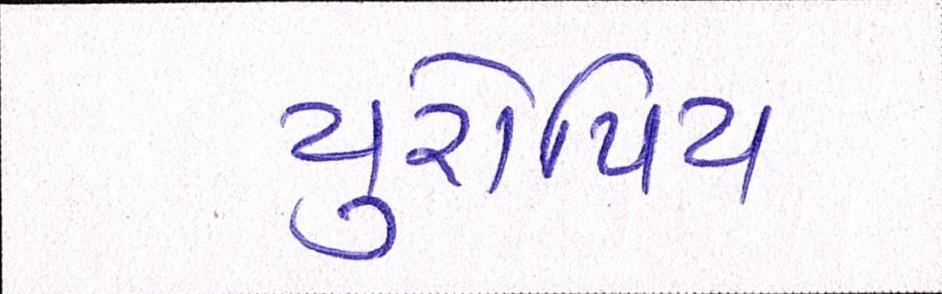 યુરોપિય